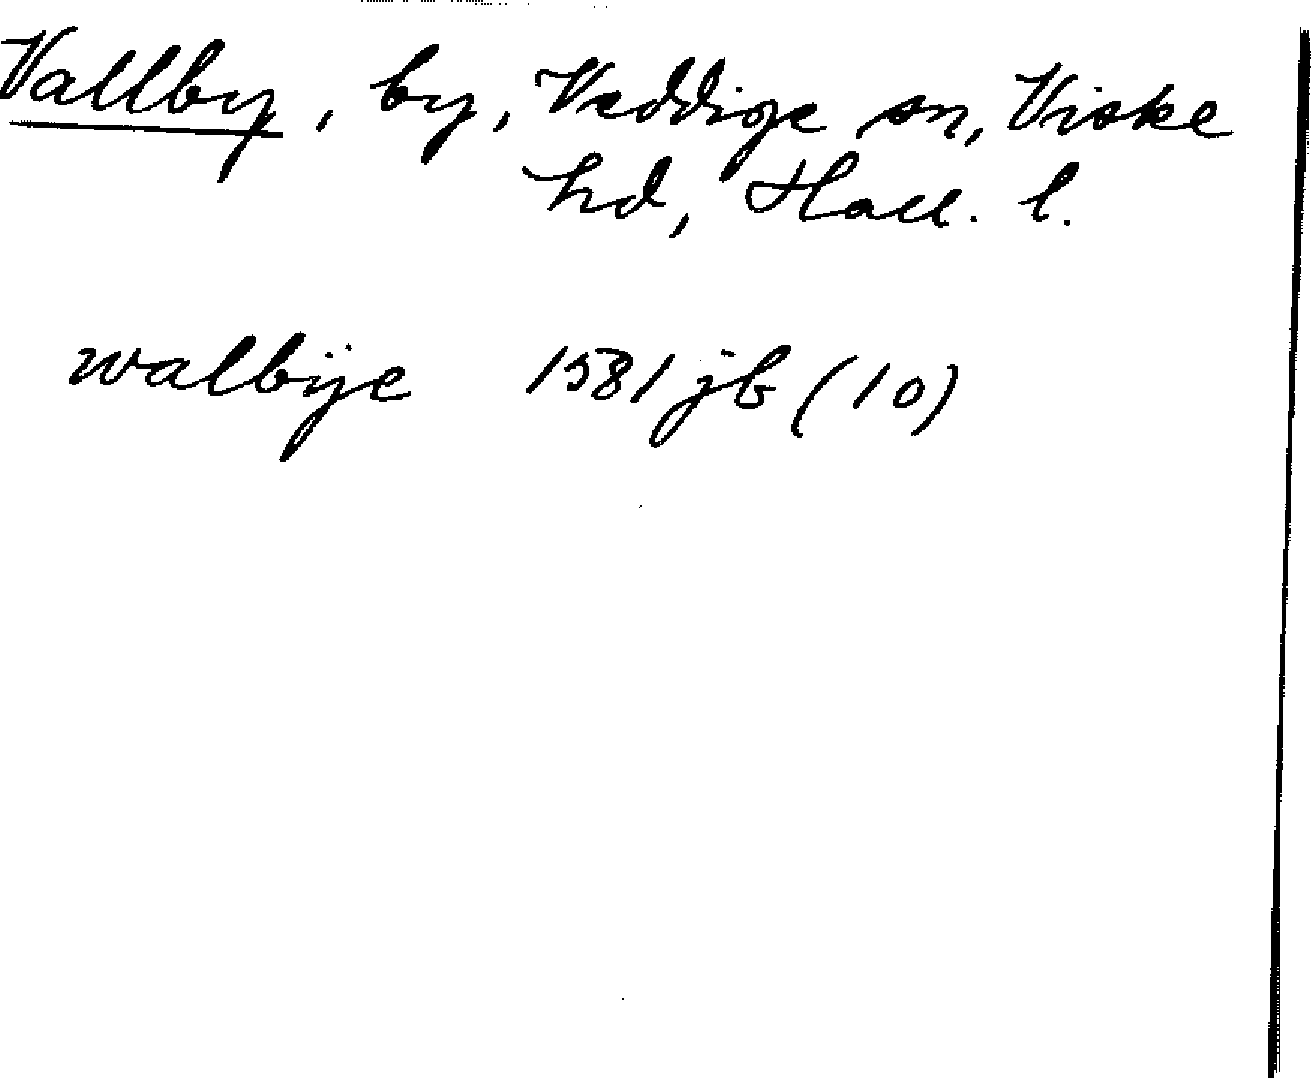 Vallby, by, Veddige sn, Viske
hd, Hall. l.
walbÿe 1581 jb (10)